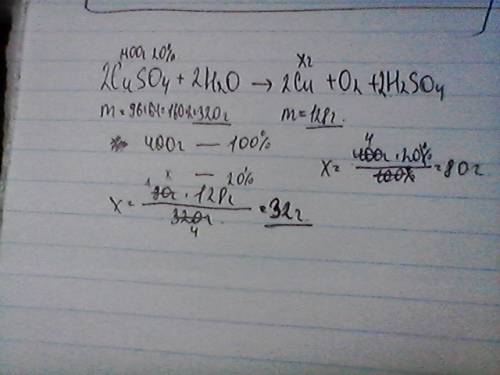 400г 20% xг
2CuSO4 + 2H2O → 2Cu + O2 + 2H2SO4
m = 96+64=160·2=320г m = 128г.
400г — 100%
x — 20%
x = 400г · 20% / 100% = 80г
x = 80г · 128г / 320г = 32г.